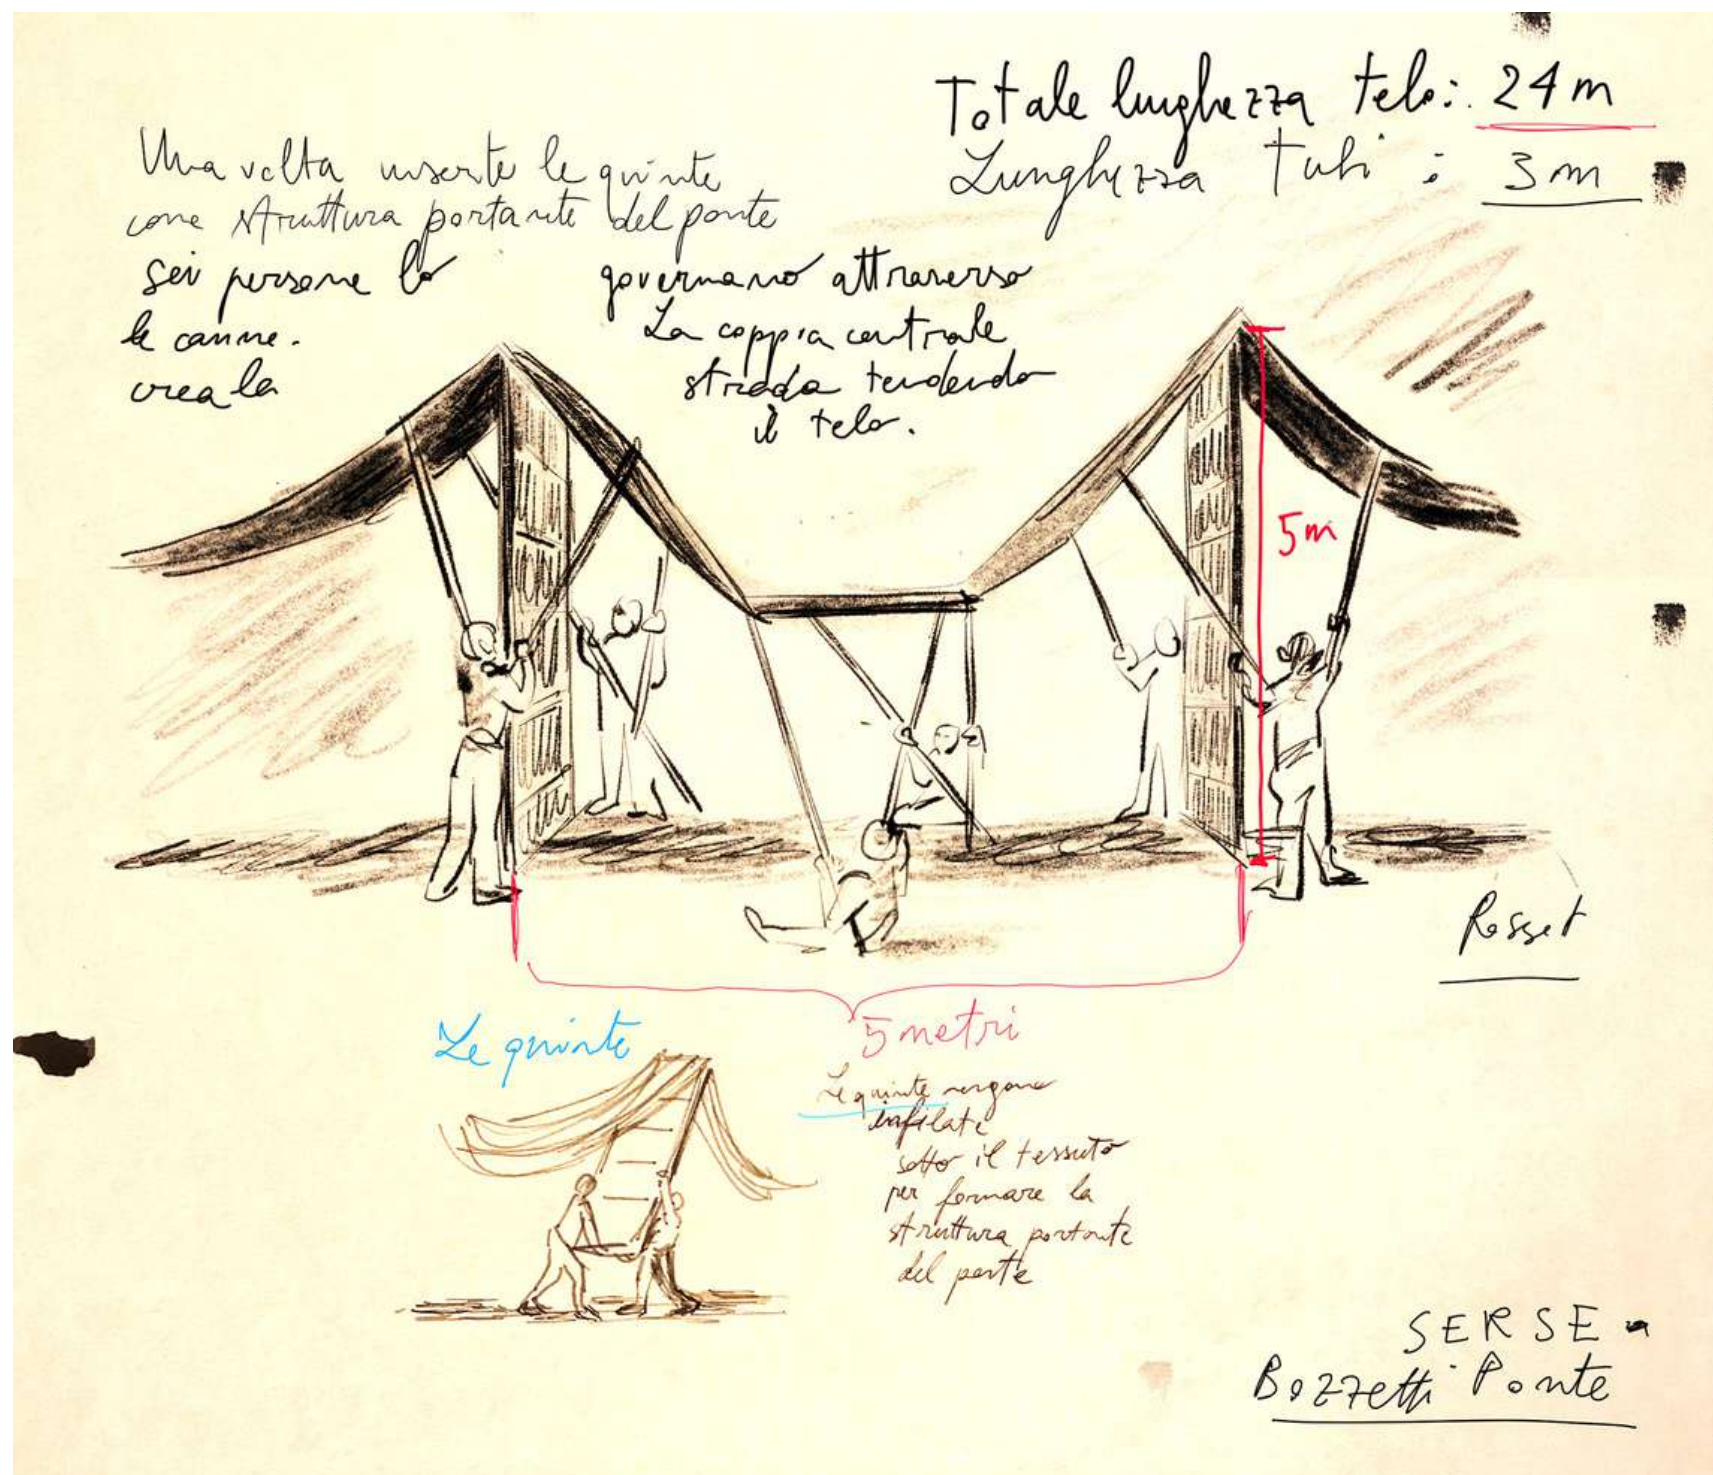 Totale lunghezza telo: 24 m
Lunghezza Tubi : 3 m
Una volta inserite le quinte
come struttura portante del ponte
sei persone lo governano attraverso
le canne. La coppia centrale
crea la strada tendendo
il telo.
5 m
Rosset
5 metri
Le quinte
Le quinte vengono
infilate
sotto il tessuto
per formare la
struttura portante
del ponte
SERSE -
Bozzetti Ponte